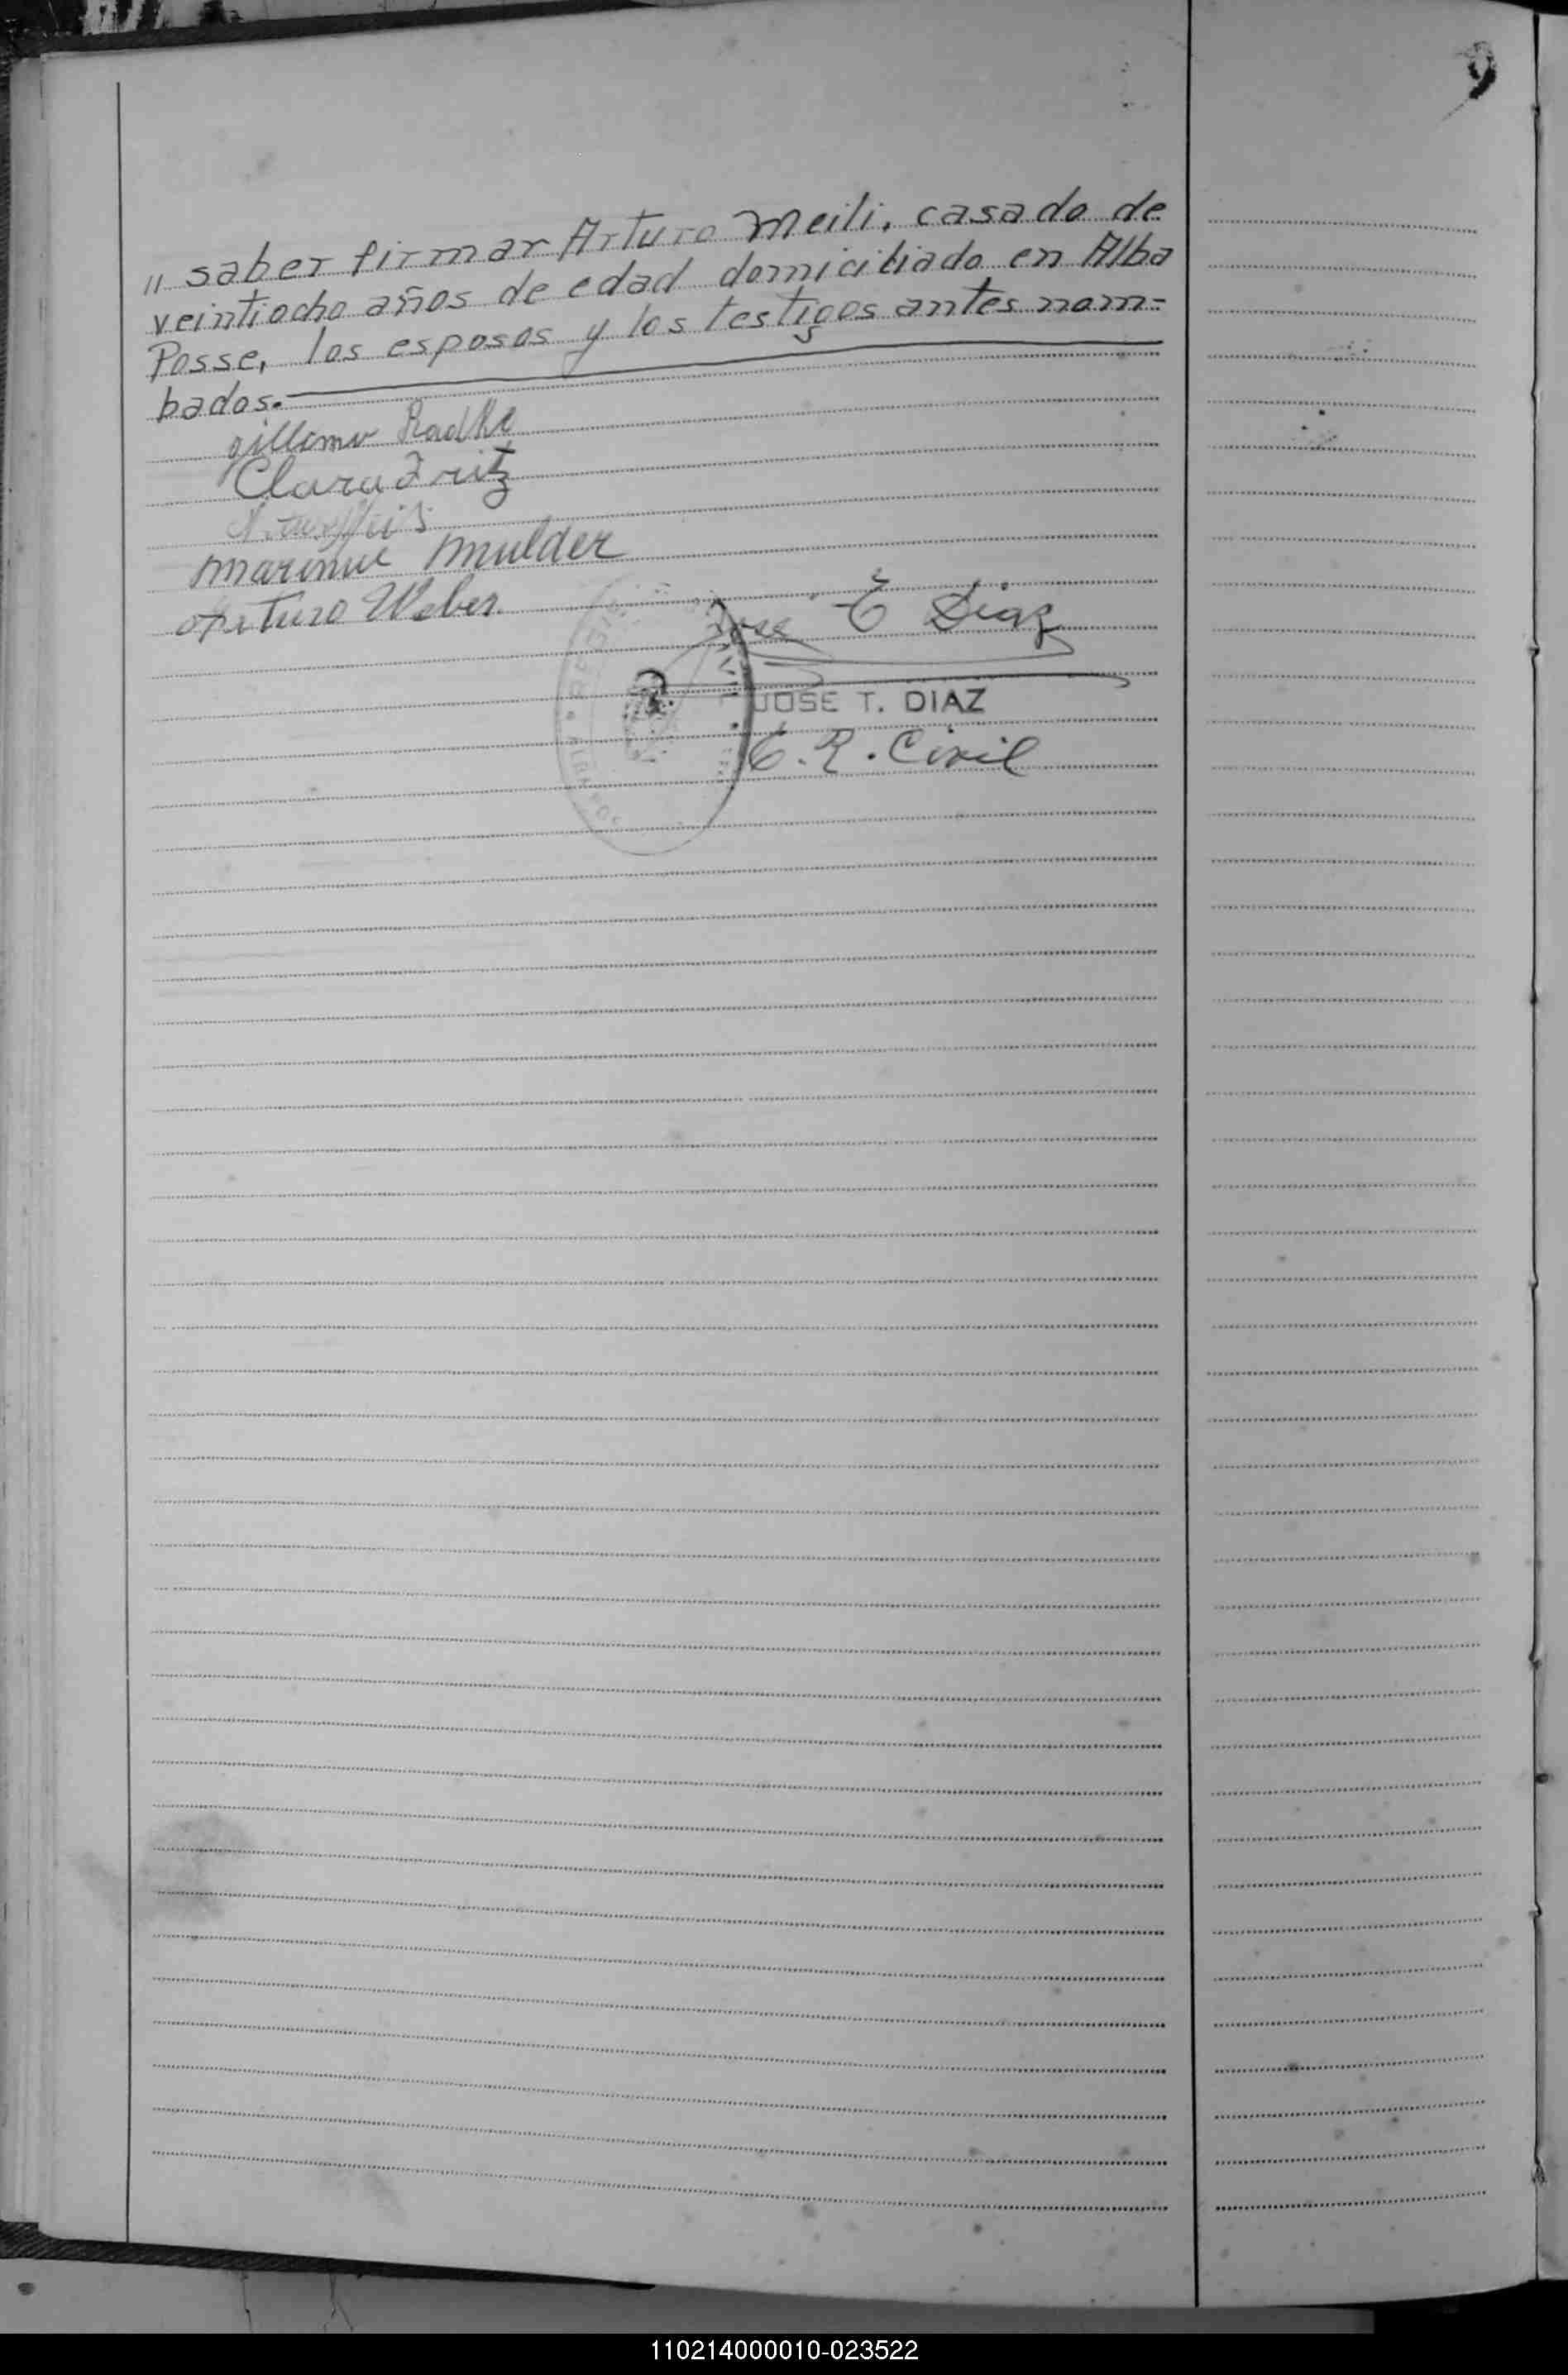 9
" saber firmar Arturo Meili, casado de
veintiocho años de edad domiciliado en Alba
Posse, los esposos y los testigos antes nom=
bados.
gillermo Radke
Clara Fritz
Marinus Mulder
Arturo Weber
Jose T Diaz
JOSE T. DIAZ
E. R. Civil
110214000010-023522